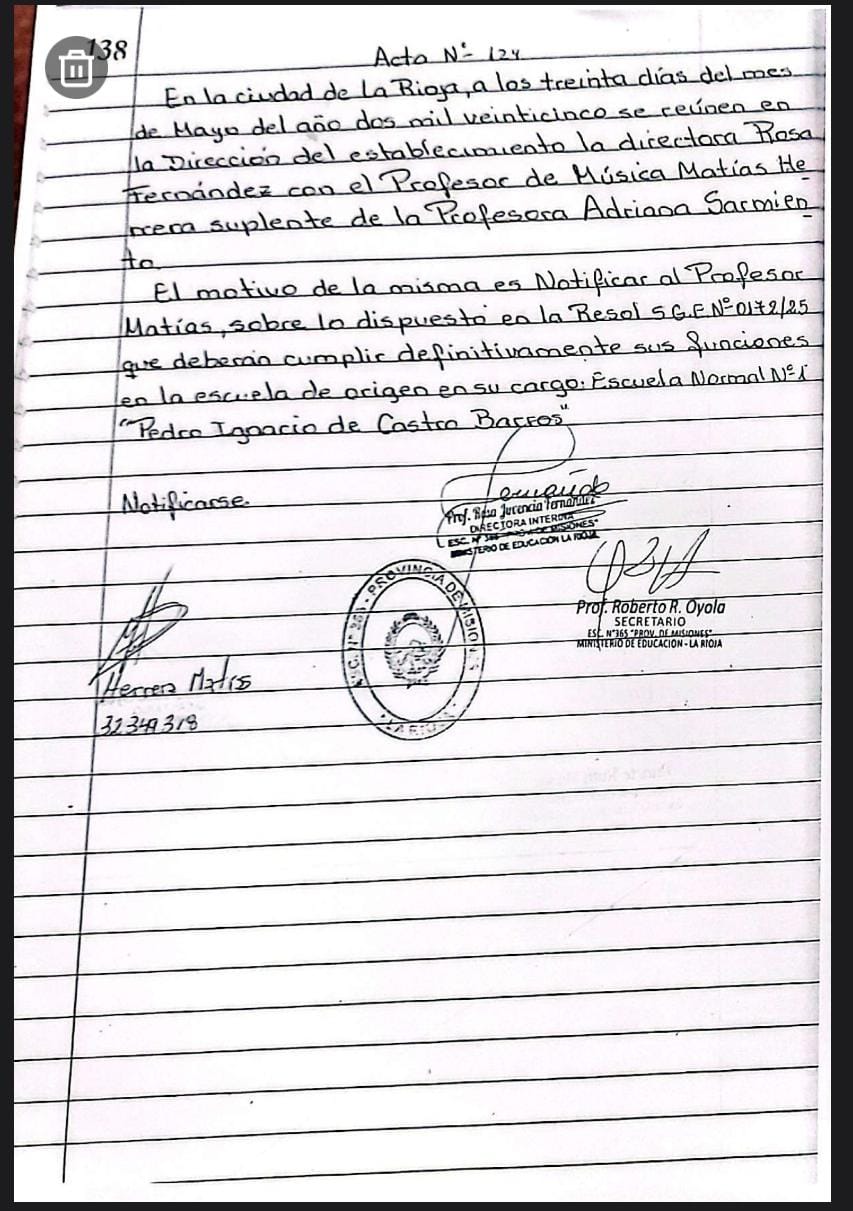 138
Acta Nº 124
En la ciudad de La Rioja, a los treinta días del mes
de Mayo del año dos mil veinticinco se reúnen en
la Dirección del establecimiento la directora Rosa
Fernández con el Profesor de Música Matías He
rrera suplente de la Profesora Adriana Sarmien
to.
El motivo de la misma es Notificar al Profesor
Matías, sobre lo dispuesto en la Resol S.G.E Nº 0172/25
que deberán cumplir definitivamente sus funciones
en la escuela de origen en su cargo: Escuela Normal Nº 1
"Pedro Ignacio de Castro Barros"
Notificarse.
Prof. Rosa Fernández
DIRECTORA INTERINA
ESC. Nº "PROV. DE MISIONES"
MINISTERIO DE EDUCACIÓN LA RIOJA
Prof. Roberto R. Oyola
SECRETARIO
ESC. N°365 "PROV. DE MISIONES"
MINISTERIO DE EDUCACION - LA RIOJA
PROVINCIA DE MISIONES
LA RIOJA
Herrera Matías
32349318